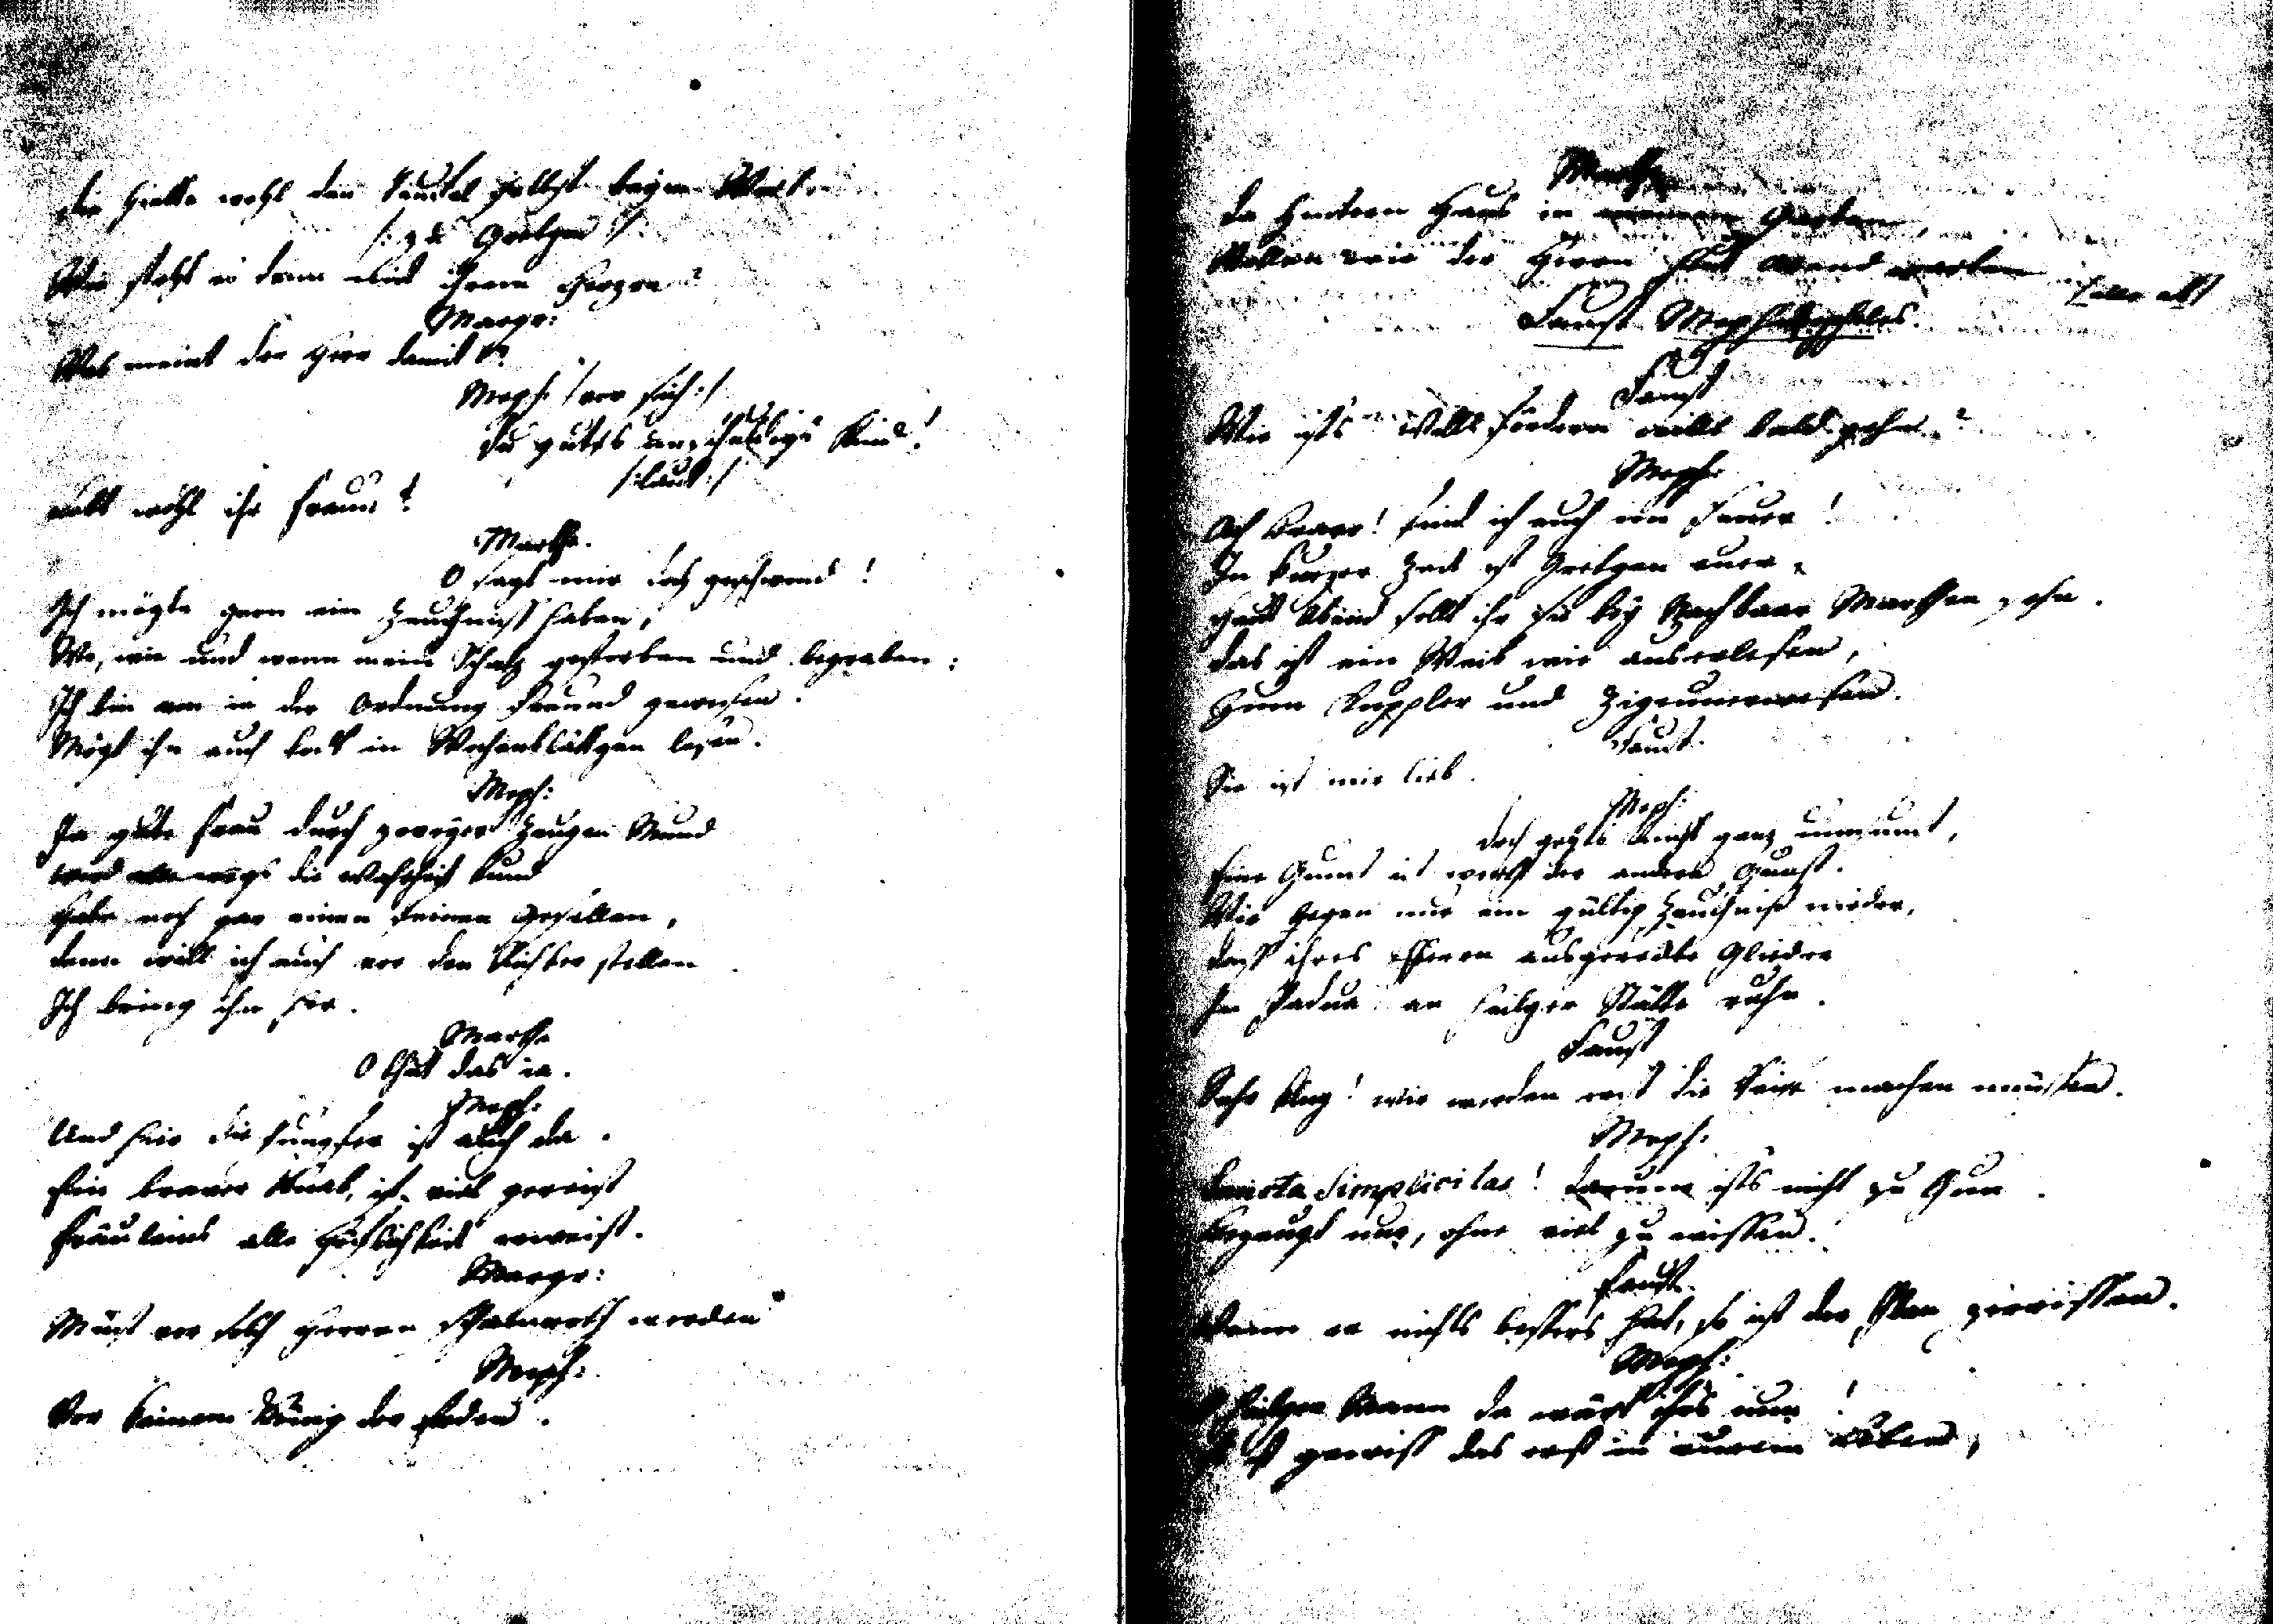 Die hielte wohl den Teufel selbst beym Wort.
/: zu Gretgen :/
Wie steht es denn mit ihrem Herzen?
Margr:
Was meint der Herr damit?
Meph. /vor sich:/
Du guts unschuldigs Kind!
/:laut:/
Lebt wohl ihr Fraun!
Marthe.
O sagt mir doch geschwind!
Ich mögte gern ein Zeugniss haben,
Wo, wie und wenn mein Schatz gestorben und begraben.
Ich bin von ie der Ordnung Freund gewesen.
Mögt ihn auch todt im Wochenblättgen lesen.
Meph:
Ja gute Frau durch zweyer Zeugen Mund
wird allerwegs die Wahrheit kund
Habe noch gar einen feinen Gesellen,
denn will ich euch vor den Richter stellen
Ich bring ihn her.
Marthe
O thut das ia.
Meph:
Und hier die Jungfer ist auch da.
Ein braver Knab, ist viel gereist
Fräuleins alle Höflichkeit erweist.
Margr:
Müst vor solch Herren schamroth werden
Meph:
Vor keinem König der Erden.
Marthe
Da hintern Haus in meinem Garten
Wollen wir der Herrn heut Abend warten
/alle ab/
Faust Mephistopheles.
Faust
Wie ists? Wills fördern wills bald gehn?
Meph.
Ach Bravo! find ich euch im Feuer!
In kurzer Zeit ist Gretgen euer.
Heut Abend sollt ihr sie bey Nachbaar Marthen sehn.
Das ist ein Weib wie auserlesen,
Zum Kuppler und Zigeunerwesen.
Faust.
Sie ist mir lieb.
Meph:
Doch gehts nicht ganz umsunst,
Eine Gunst ist werth der andern Gunst.
Wir legen nur ein gültig Zeugniss nieder,
Dass ihres Ehherrn ausgereckte Glieder
In Padua an heilger Stätte ruhn.
Faust
Sehr klug! wir werden erst die Reise machen müssen.
Meph:
Sancta Simplicitas! darum ists nicht zu thun.
Bezeugt nur, ohne viel zu wissen.
Faust.
Wenn er nichts bessers hat, so ist der Plan zerrissen.
Meph:
O heilger Mann da wärt ihrs nun!
Es ist gewiss das erst in eurem Leben,